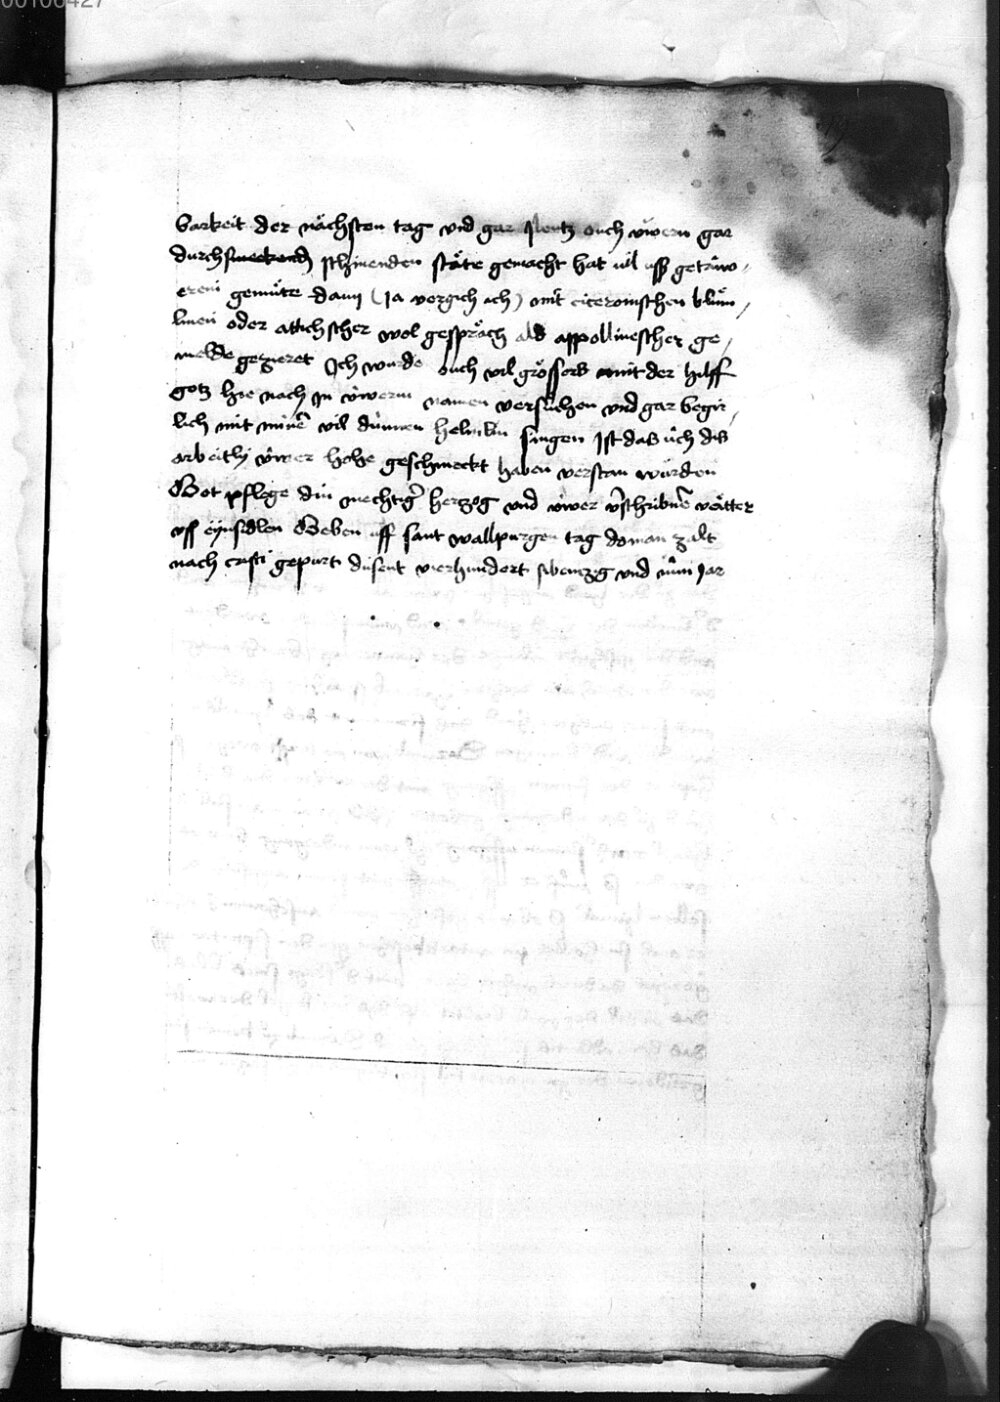 00106427
barkeit der nächsten tag vnd gar Jlentz ouch üwern gar
durch schinenden stäte gemacht hat vil vss getrüw-
erem gemüte dann (Ja vergich ich) mit ciceronischen blům-
linen oder attichscher wol gespräch ald appollinescher ge-
melde gezieret Ich wurde ouch vil grössers mit der hilff
gotz hie nach Jn üwerm namen versüchen vnd gar begir-
lich mit minē vil dünnen helmlin singen Jst das üch dis
arbeitly üwer hohe geschmeckt haben verstan würden
Got pflege din mechtigr herzog vnd üwer vätter
vss eÿnsidlen Geben vff sant wallpurgen tag do man zalt
nach cristi gepurt dusent vierhundert sibentzig vnd nün Jar